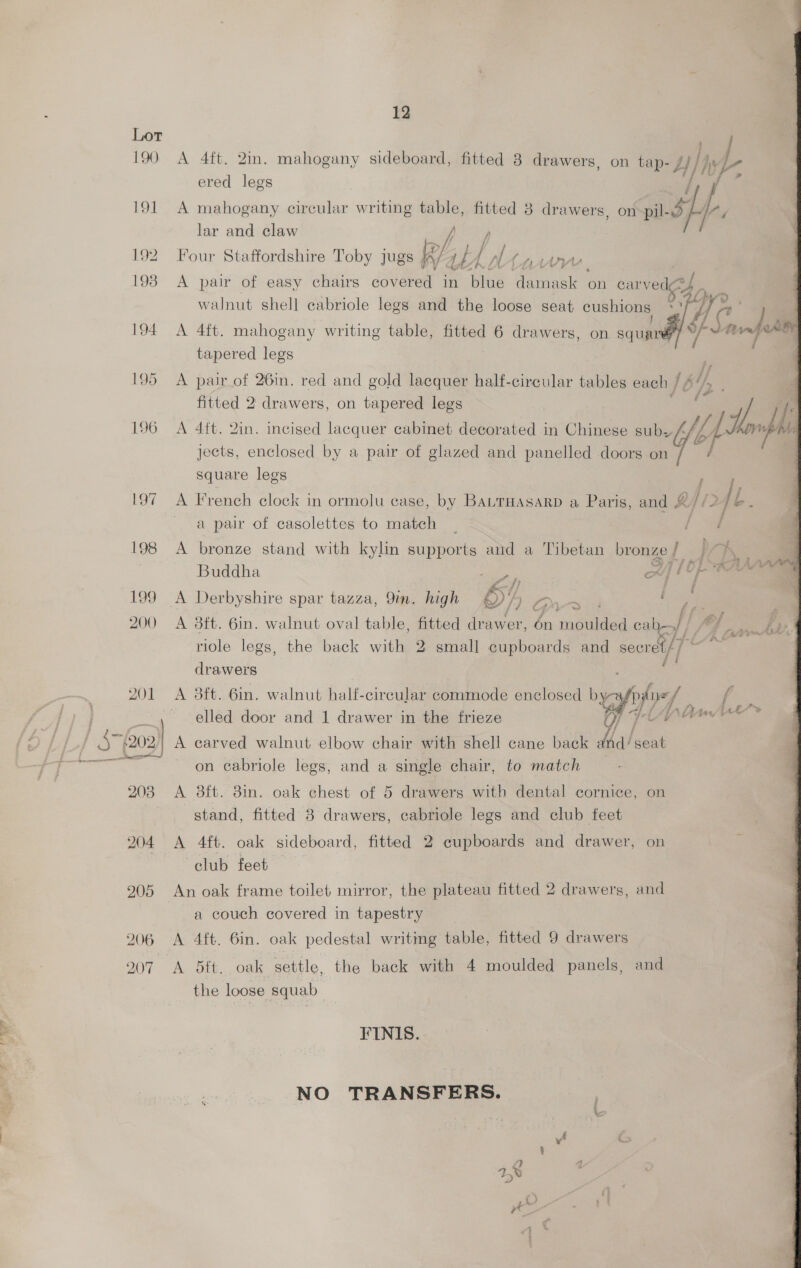 12
Lot
190 A 4ft. 2in. mahogany sideboard, fitted 3 drawers, on tap-
ered legs
191 A mahogany circular writing table, fitted 3 drawers, on pil-
lar and claw
192 Four Staffordshire Toby jugs
193 A pair of easy chairs covered in blue damask on carved
walnut shell cabriole legs and the loose seat cushions
194 A 4ft. mahogany writing table, fitted 6 drawers, on square
tapered legs
195 A pair of 26in. red and gold lacquer half-circular tables each
fitted 2 drawers, on tapered legs
196 A 4ft. 2in. incised lacquer cabinet decorated in Chinese sub-
jects, enclosed by a pair of glazed and panelled doors on
square legs
197 A French clock in ormolu case, by Balthasard a Paris, and
a pair of casolettes to match
198 A bronze stand with kylin supports and a Tibetan bronze
Buddha
199 A Derbyshire spar tazza, 9in. high
200 A 3ft. 6in. walnut oval table, fitted drawer, on moulded cab-
riole legs, the back with 2 small cupboards and secret
drawers
201 A 3ft. 6in. walnut half-circular commode enclosed by pan-
elled door and 1 drawer in the frieze
202 A carved walnut elbow chair with shell cane back and seat
on cabriole legs, and a single chair, to match
203 A 3ft. 3in. oak chest of 5 drawers with dental cornice, on
stand, fitted 3 drawers, cabriole legs and club feet
204 A 4ft. oak sideboard, fitted 2 cupboards and drawer, on
club feet
205 An oak frame toilet mirror, the plateau fitted 2 drawers, and
a couch covered in tapestry
206 A 4ft. 6in. oak pedestal writing table, fitted 9 drawers
207 A 5ft. oak settle, the back with 4 moulded panels, and
the loose squab
FINIS.
NO TRANSFERS.